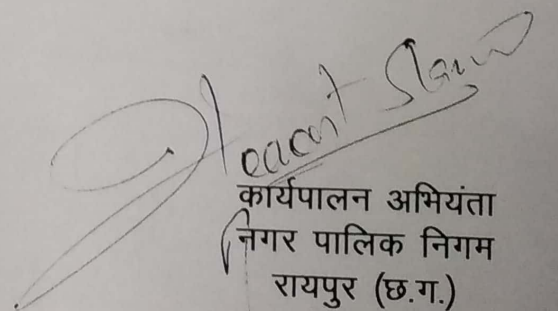 कार्यपालन अभियंता
नगर पालिक निगम
रायपुर (छ.ग.)